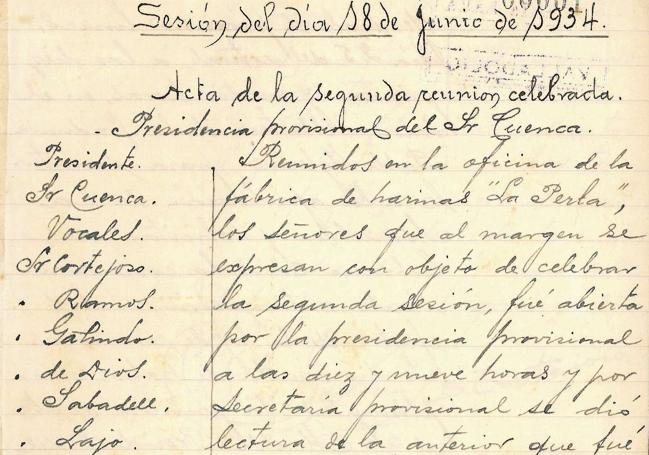 Sesión del día 18 de Junio de 1934.
Acta de la segunda reunion celebrada.
- Presidencia provisional del Sr Cuenca.
Presidente.
Sr Cuenca.
Vocales.
Sr Cortejoso.
" Ramos.
" Galindo.
" de Dios.
" Sabadell.
" Lajo.
Reunidos en la oficina de la
fábrica de harinas "La Perla",
los señores que al margen se
expresan con objeto de celebrar
la segunda sesión, fué abierta
por la presidencia provisional
a las diez y nueve horas y por
Secretaría provisional se dió
lectura de la anterior que fué